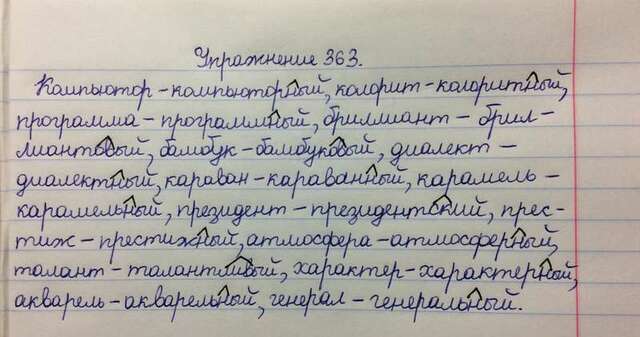 Упражнение 363.
Компьютор – компьюторный, колорит – колоритный,
программа – программный, бриллиант – брил-
лиантовый, бамбук – бамбуковый, диалект –
диалектный, караван – караванный, карамель –
карамельный, президент – президентский, прес-
тиж – престижный, атмосфера – атмосферный,
талант – талантливый, характер – характерный,
акварель – акварельный, генерал – генеральный.